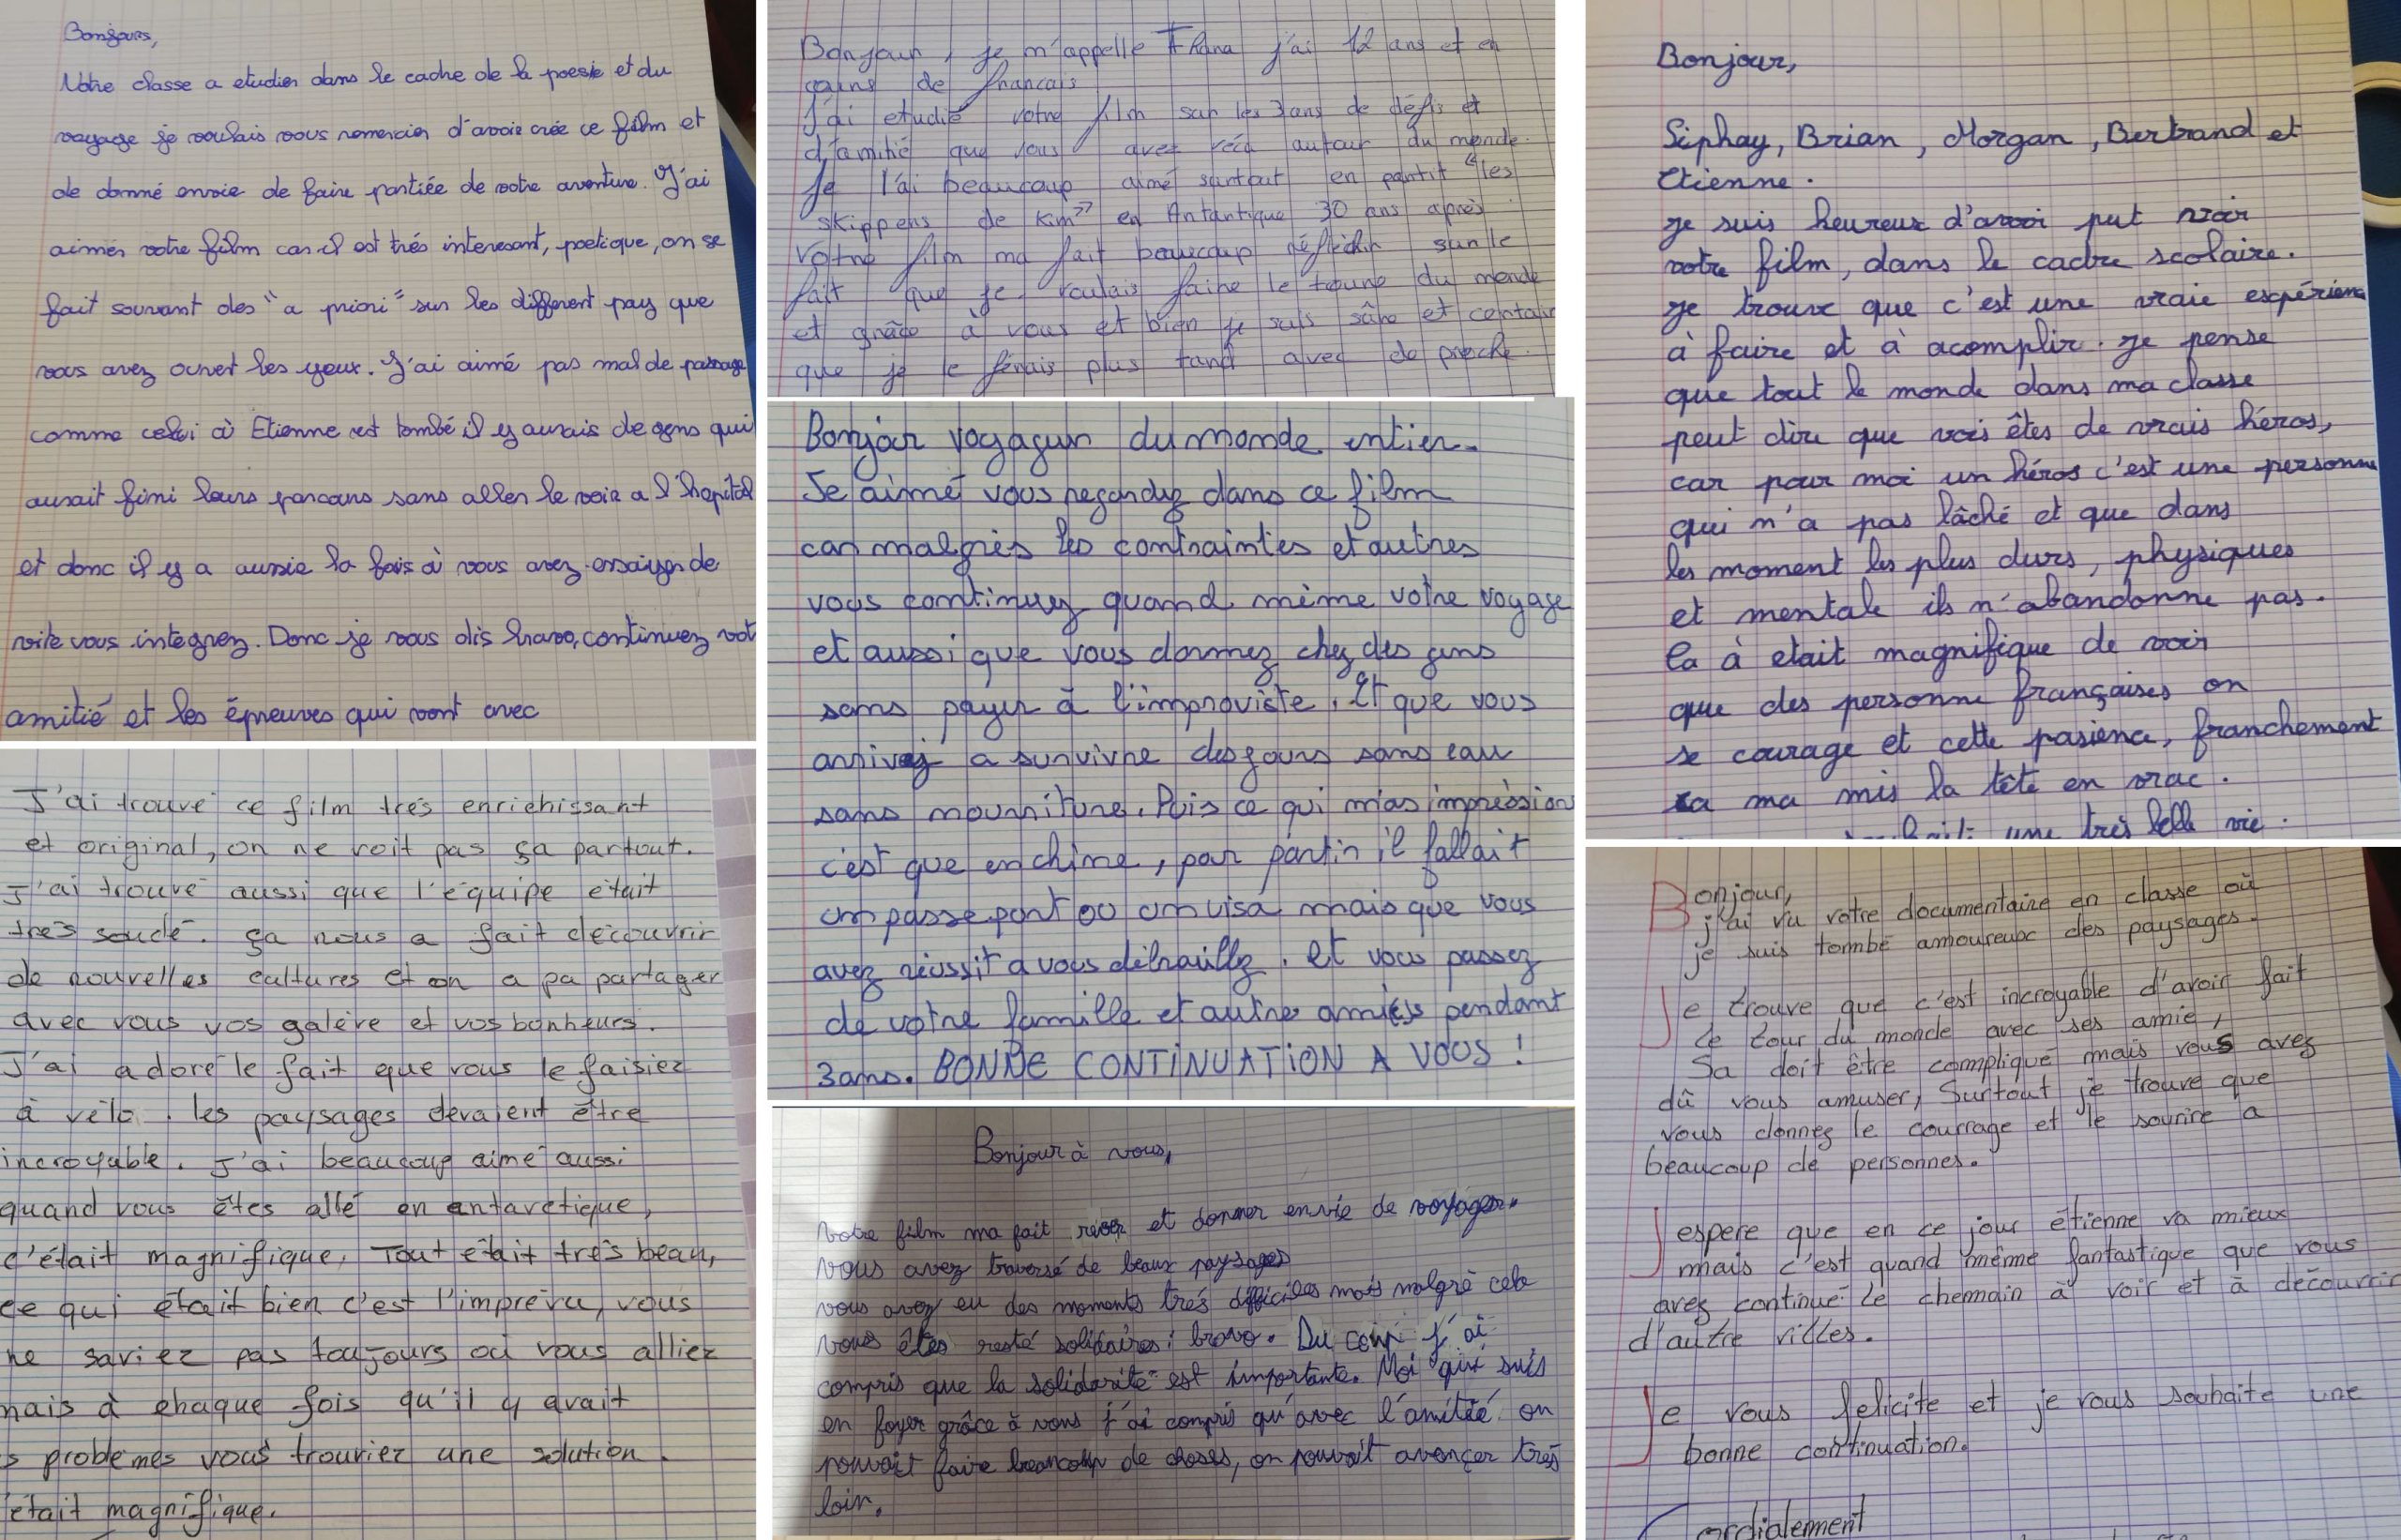 Bonjours,
Notre classe a etudier dans le cadre de la poesie et du
voyage je voulais vous remercier d'avoir crée ce film et
de donné envie de faire partiée de votre aventure. J'ai
aimer votre film car il est trés interesant, poetique, on se
fait souvant des "a priori" sur les different pay que
vous avez ouvert les yeux. J'ai aimé pas mal de passage
comme celui où Etienne est tombé il y aurais de gens qui
aurait fini leurs parcours sans aller le voir a l'hopital
et donc il y a aussie la fois où vous avez essayer de
vous integrez. Donc je vous dis bravo, continuez vot
amitié et les épreuves qui vont avec
J'ai trouvé ce film très enrichissant
et original, on ne voit pas ça partout.
J'ai trouvé aussi que l'équipe était
très soudé. ça nous a fait découvrir
de nouvelles cultures et on a pu partager
avec vous vos galère et vos bonheurs.
J'ai adoré le fait que vous le faisiez
à vélo. les paysages devaient être
incroyable. J'ai beaucoup aimé aussi
quand vous êtes allé en antarctique,
c'était magnifique, Tout était très beau,
ce qui était bien c'est l'imprévu, vous
ne saviez pas toujours où vous alliez
mais à chaque fois qu'il y avait
s problèmes vous trouviez une solution.
'était magnifique.
Bonjour, je m'appelle j'ai 12 ans et en
cours de francais
J'ai etudié votre film sur les 3 ans de défis et
d'amitié que vous avez vécu autour du monde.
Je l'ai beaucoup aimé surtout en partit "les
skippers de Km" en Antartique 30 ans après
Votre film ma fait beaucoup réfléchir sur le
fait que je voulais faire le toure du monde
et grâce à vous et bien je suis sûre et certain
que je le ferais plus tard avec de proche.
Bonjour voyageur du monde entier.
Je aimé vous regardez dans ce film
car malgrès les contraintes et autres
vous continuez quand même votre voyage
et aussi que vous dormez chez des gens
sans payer à l'improviste. Et que vous
arrivez a survivre des jours sans eau
sans nourriture. Puis ce qui m'as impression
c'est que en chine, pour partir il fallait
un passeport ou un visa mais que vous
avez réussit a vous débrouillez. et vous passez
de votre famille et autre amies pendant
3ans. BONNE CONTINUATION A VOUS !
Bonjour à vous,
Votre film ma fait rêver et donner envie de voyager.
Vous avez traversé de beaux paysages
vous avez eu des moments très difficiles mais malgré cela
vous êtes resté solidaires; bravo. Du coup j'ai
compris que la solidarité est importante. Moi qui suis
en foyer grâce à vous j'ai compris qu'avec l'amitié on
pouvait faire beaucoup de choses, on pouvait avancer très
loin.
Bonjour,
Siphay, Brian, Morgan, Bertrand et
Etienne.
je suis heureux d'avoi put voir
votre film, dans le cadre scolaire.
je trouve que c'est une vraie expérienc
à faire et à acomplir. je pense
que tout le monde dans ma classe
peut dire que vous êtes de vrais héros,
car pour moi un héros c'est une personne
qui n'a pas lâché et que dans
les moment les plus durs, physiques
et mentale ils n'abandonne pas.
Ca à etait magnifique de voir
que des personne françaises on
se courage et cette pasience, franchement
ca ma mis la tête en vrac.
une très belle vie.
Bonjour,
j'ai vu votre documentaire en classe où
je suis tombé amoureux des paysages.
Je trouve que c'est incroyable d'avoir fait
le tour du monde avec ses amie,
Sa doit être compliqué mais vous avez
dû vous amuser, Surtout je trouve que
vous donnez le courrage et le sourire a
beaucoup de personnes.
J'espere que en ce jour étienne va mieux
mais c'est quand même fantastique que vous
avez continué le chemain à voir et à découvrir
d'autre villes.
Je vous felicite et je vous souhaite une
bonne continuation.
Cordialement